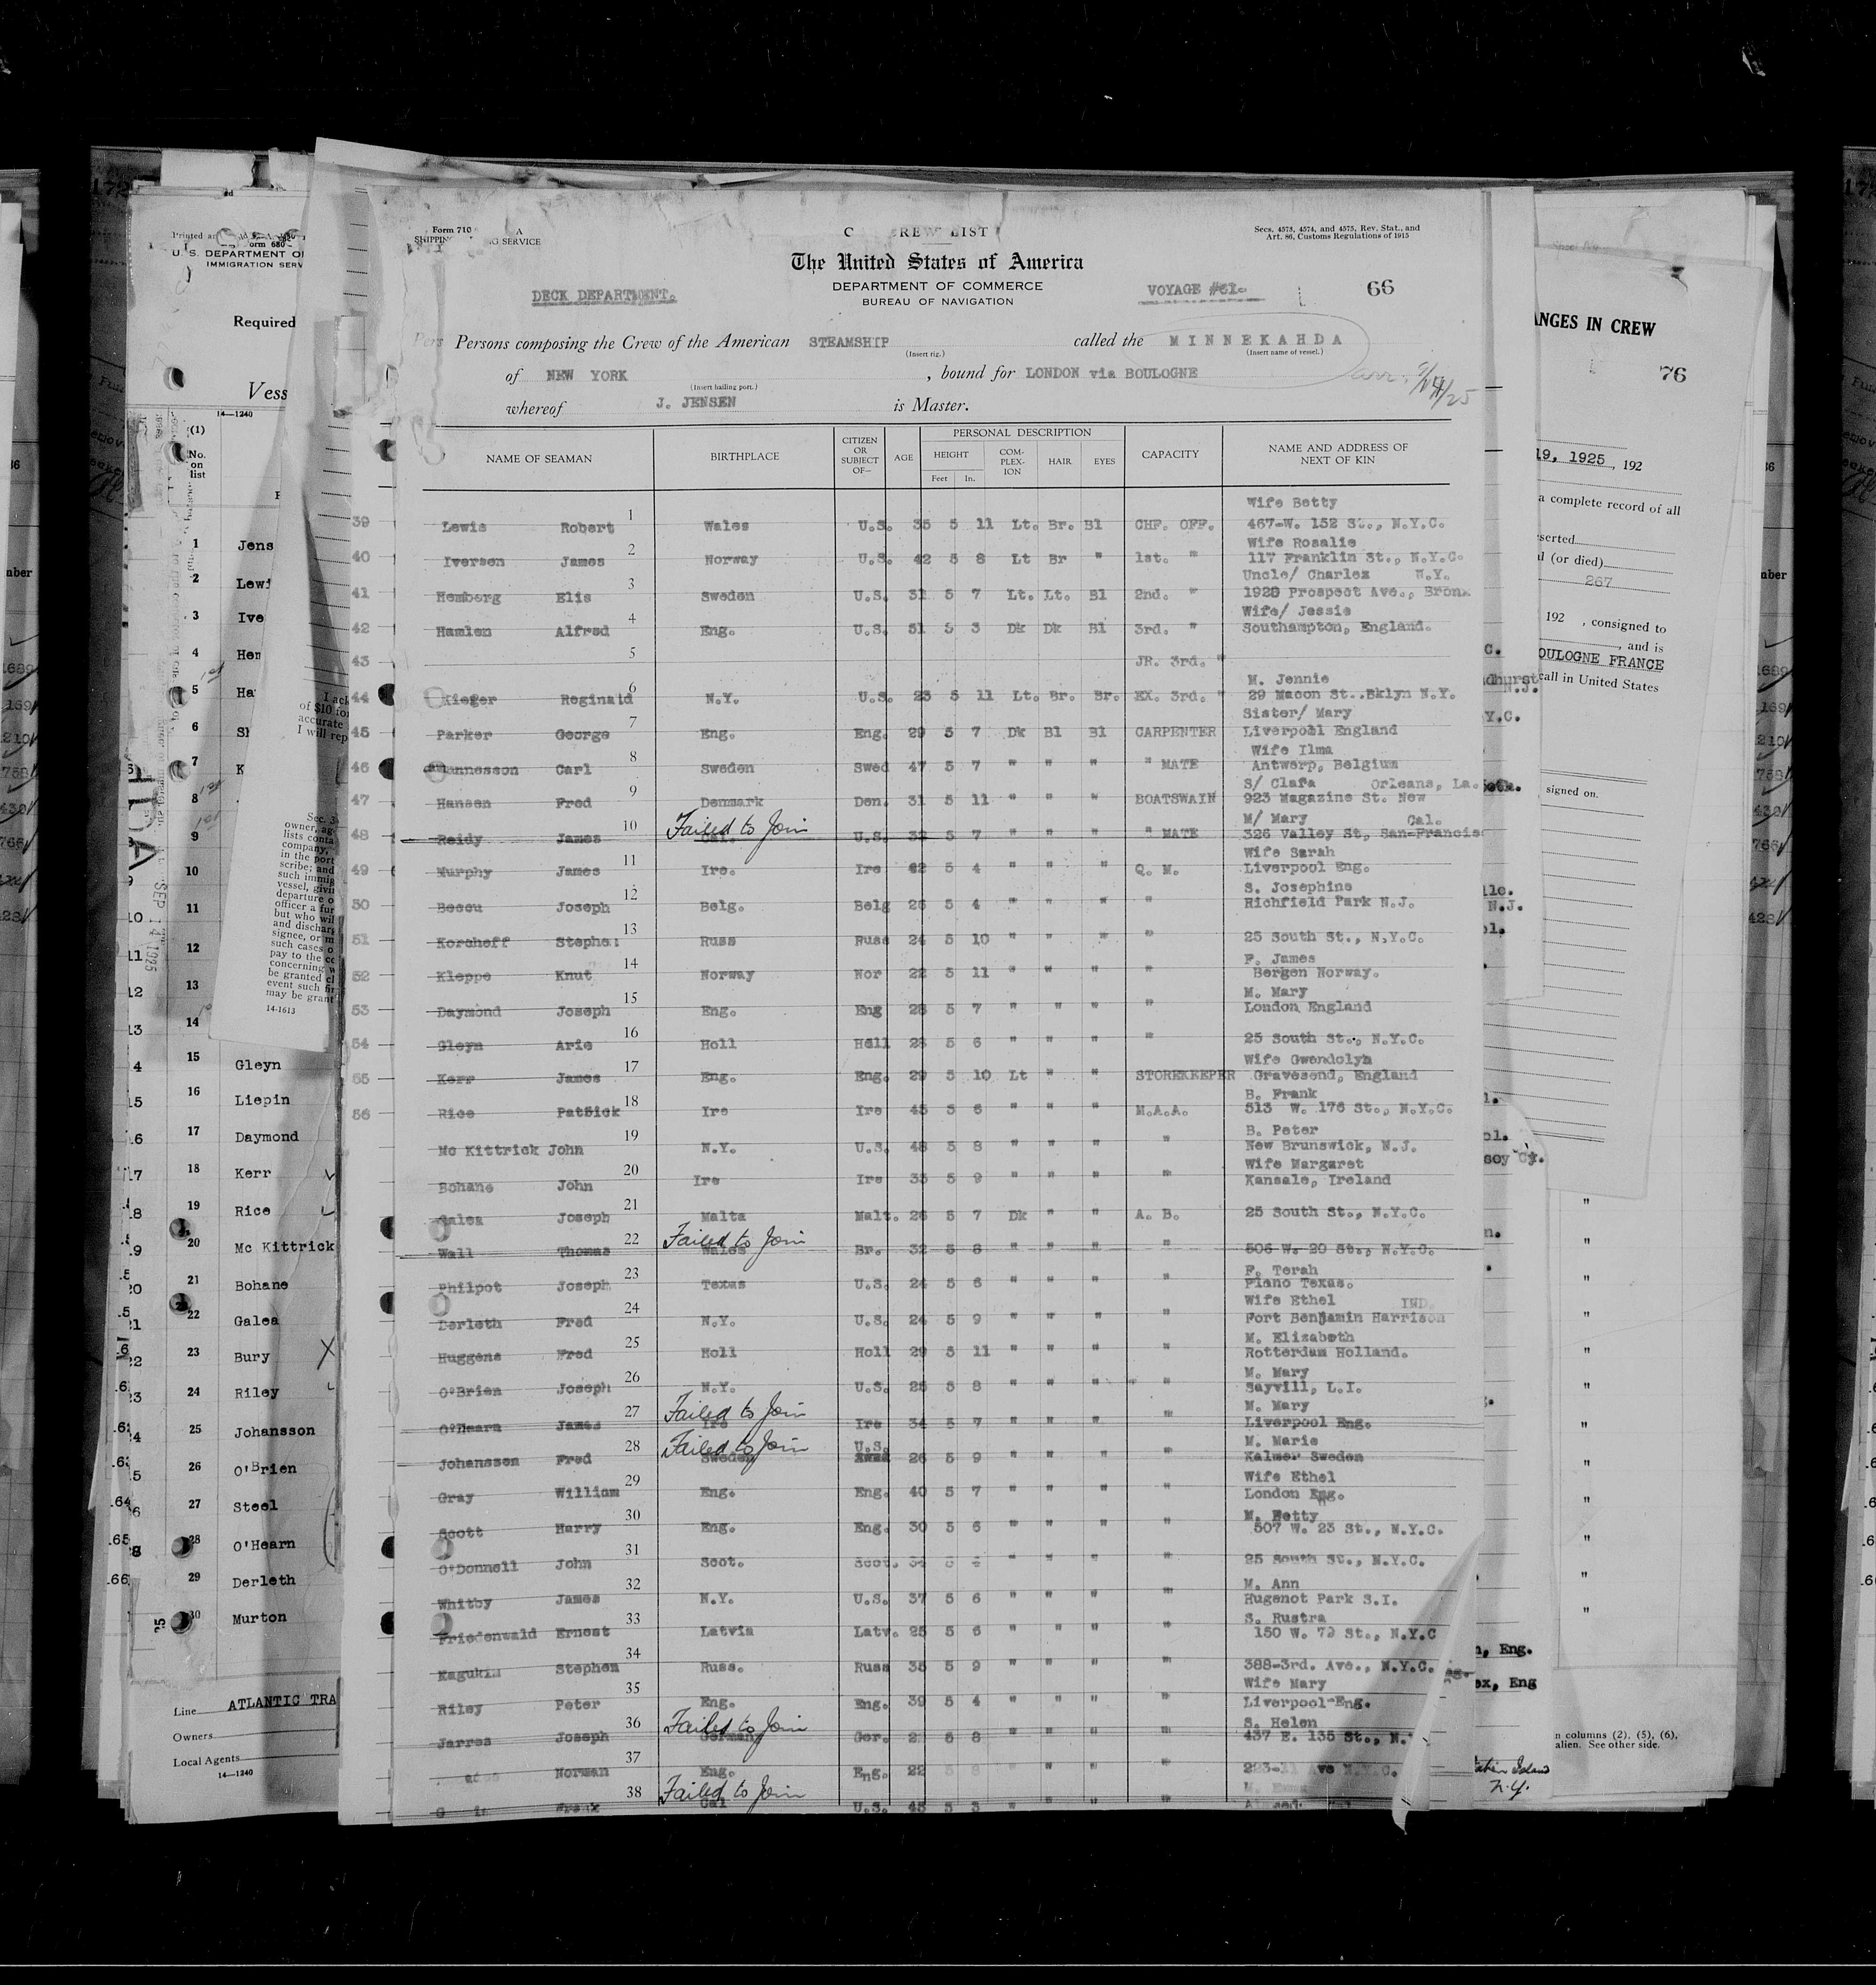 Form 710 A
SHIPPING SERVICE
CREW LIST
Secs. 4573, 4574, and 4575, Rev. Stat., and
Art. 86, Customs Regulations of 1915
The United States of America
DEPARTMENT OF COMMERCE
BUREAU OF NAVIGATION
DECK DEPARTMENT.
VOYAGE #61.
66
Persons composing the Crew of the American STEAMSHIP called the MINNEKAHDA
(Insert rig.) (Insert name of vessel.)
of NEW YORK , bound for LONDON via BOULOGNE
(Insert hailing port.)
whereof J. JENSEN is Master.
NAME OF SEAMAN BIRTHPLACE CITIZEN OR SUBJECT OF— AGE PERSONAL DESCRIPTION CAPACITY NAME AND ADDRESS OF NEXT OF KIN
HEIGHT COM-PLEX-ION HAIR EYES
Feet In.
Wife Betty
39 Lewis Robert 1 Wales U.S. 35 5 11 Lt. Br. Bl CHF. OFF. 467-W. 152 St., N.Y.C.
Wife Rosalie
40 Iversen James 2 Norway U.S. 42 5 8 Lt Br " 1st. " 117 Franklin St., N.Y.C.
Uncle/ Charles N.Y.
41 Hemborg Elis 3 Sweden U.S. 31 5 7 Lt. Lt. Bl 2nd. " 1928 Prospect Ave., Bronx
Wife/ Jessie
42 Hamlen Alfred 4 Eng. U.S. 51 5 3 Dk Dk Bl 3rd. " Southampton, England.
43 5 JR. 3rd. "
M. Jennie
44 Kieger Reginald 6 N.Y. U.S. 23 5 11 Lt. Br. Br. EX. 3rd. " 29 Macon St..Bklyn N.Y.
Sister/ Mary
45 Parker George 7 Eng. Eng. 29 5 7 Dk Bl Bl CARPENTER Liverpool England
Wife Ilma
46 Carl 8 Sweden Swed 47 5 7 " " " " MATE Antwerp, Belgium
S/ Clara Orleans, La.
47 Hansen Fred 9 Denmark Den. 31 5 11 " " " BOATSWAIN 923 Magazine St. New
M/ Mary Cal.
48 Reidy James 10 Failed to Join Cal. U.S. 32 5 7 " " " " MATE 326 Valley St, San-Francisc
Wife Sarah
49 Murphy James 11 Ire. Ire 42 5 4 " " " Q. M. Liverpool Eng.
S. Josephine
50 Beccu Joseph 12 Belg. Belg 26 5 4 " " " " Richfield Park N.J.
51 Korcheff Stephen 13 Russ Russ 24 5 10 " " " " 25 South St., N.Y.C.
F. James
52 Kleppe Knut 14 Norway Nor 22 5 11 " " " " Bergen Norway.
M. Mary
53 Daymond Joseph 15 Eng. Eng 28 5 7 " " " " London England
54 Gleyn Arie 16 Holl Holl 28 5 6 " " " " 25 South St., N.Y.C.
Wife Gwendolyn
55 Kerr James 17 Eng. Eng. 29 5 10 Lt " " STOREKEEPER Gravesend, England
B. Frank
56 Rice Patrick 18 Ire Ire 45 5 6 " " " M.A.A. 513 W. 176 St., N.Y.C.
B. Peter
Mc Kittrick John 19 N.Y. U.S. 48 5 8 " " " " New Brunswick, N.J.
Wife Margaret
Bohane John 20 Ire Ire 35 5 9 " " " " Kansale, Ireland
Galea Joseph 21 Malta Malt. 26 5 7 Dk " " A. B. 25 South St., N.Y.C.
Wall Thomas 22 Failed to Join Wales Br. 32 5 8 " " " " 506 W. 20 St., N.Y.C.
F. Terah
Philpot Joseph 23 Texas U.S. 24 5 6 " " " " Plano Texas.
Wife Ethel IND.
Derleth Fred 24 N.Y. U.S. 24 5 9 " " " " Fort Benjamin Harrison
M. Elizabeth
Huggens Fred 25 Holl Holl 29 5 11 " " " " Rotterdam Holland.
M. Mary
O'Brien Joseph 26 N.Y. U.S. 25 5 8 " " " " Sayvill, L.I.
M. Mary
O'Hearn James 27 Failed to Join Ire Ire 34 5 7 " " " " Liverpool Eng.
M. Marie
Johansson Fred 28 Failed to Join Sweden U.S. 26 5 9 " " " " Kalmer Sweden
Wife Ethel
Gray William 29 Eng. Eng. 40 5 7 " " " " London Eng.
M. Betty
Scott Harry 30 Eng. Eng. 30 5 6 " " " " 507 W. 23 St., N.Y.C.
O'Donnell John 31 Scot. Scot. " " " " 25 South St., N.Y.C.
M. Ann
Whitby James 32 N.Y. U.S. 37 5 6 " " " " Hugenot Park S.I.
S. Rustra
Friedenwald Ernest 33 Latvia Latv. 25 5 6 " " " " 150 W. 79 St., N.Y.C
Kagukin Stephen 34 Russ. Russ 35 5 9 " " " " 388-3rd. Ave., N.Y.C.
Wife Mary
Riley Peter 35 Eng. Eng. 39 5 4 " " " " Liverpool-Eng.
S. Helen
Jarres Joseph 36 Failed to Join Germany Ger. 2 5 8 " " " " 437 E. 135 St., N.
Norman 37 Eng. Eng. 22 " " " "
38 Failed to Join Cal U.S. 45 5 3
U.S. DEPARTMENT OF
IMMIGRATION SERV
Required
Vess
14—1240
(1)
No. on list
1 Jens
2 Lewi
3 Ive
4 Hem
5 Ha
6 Sh
7 K
8
9
10
11
12
13
14
15 Gleyn
16 Liepin
17 Daymond
18 Kerr
19 Rice
20 Mc Kittrick
21 Bohane
22 Galea
23 Bury
24 Riley
25 Johansson
26 O'Brien
27 Steel
28 O'Hearn
29 Derleth
30 Murton
Line ATLANTIC TRA
Owners
Local Agents
14—1240
SEP 14 1925
14-1613
ANGES IN CREW
76
19, 1925, 192
a complete record of all
(or died)
267
192 , consigned to
, and is
OULOGNE FRANCE
call in United States
signed on.
n columns (2), (5), (6),
alien. See other side.
N.Y.